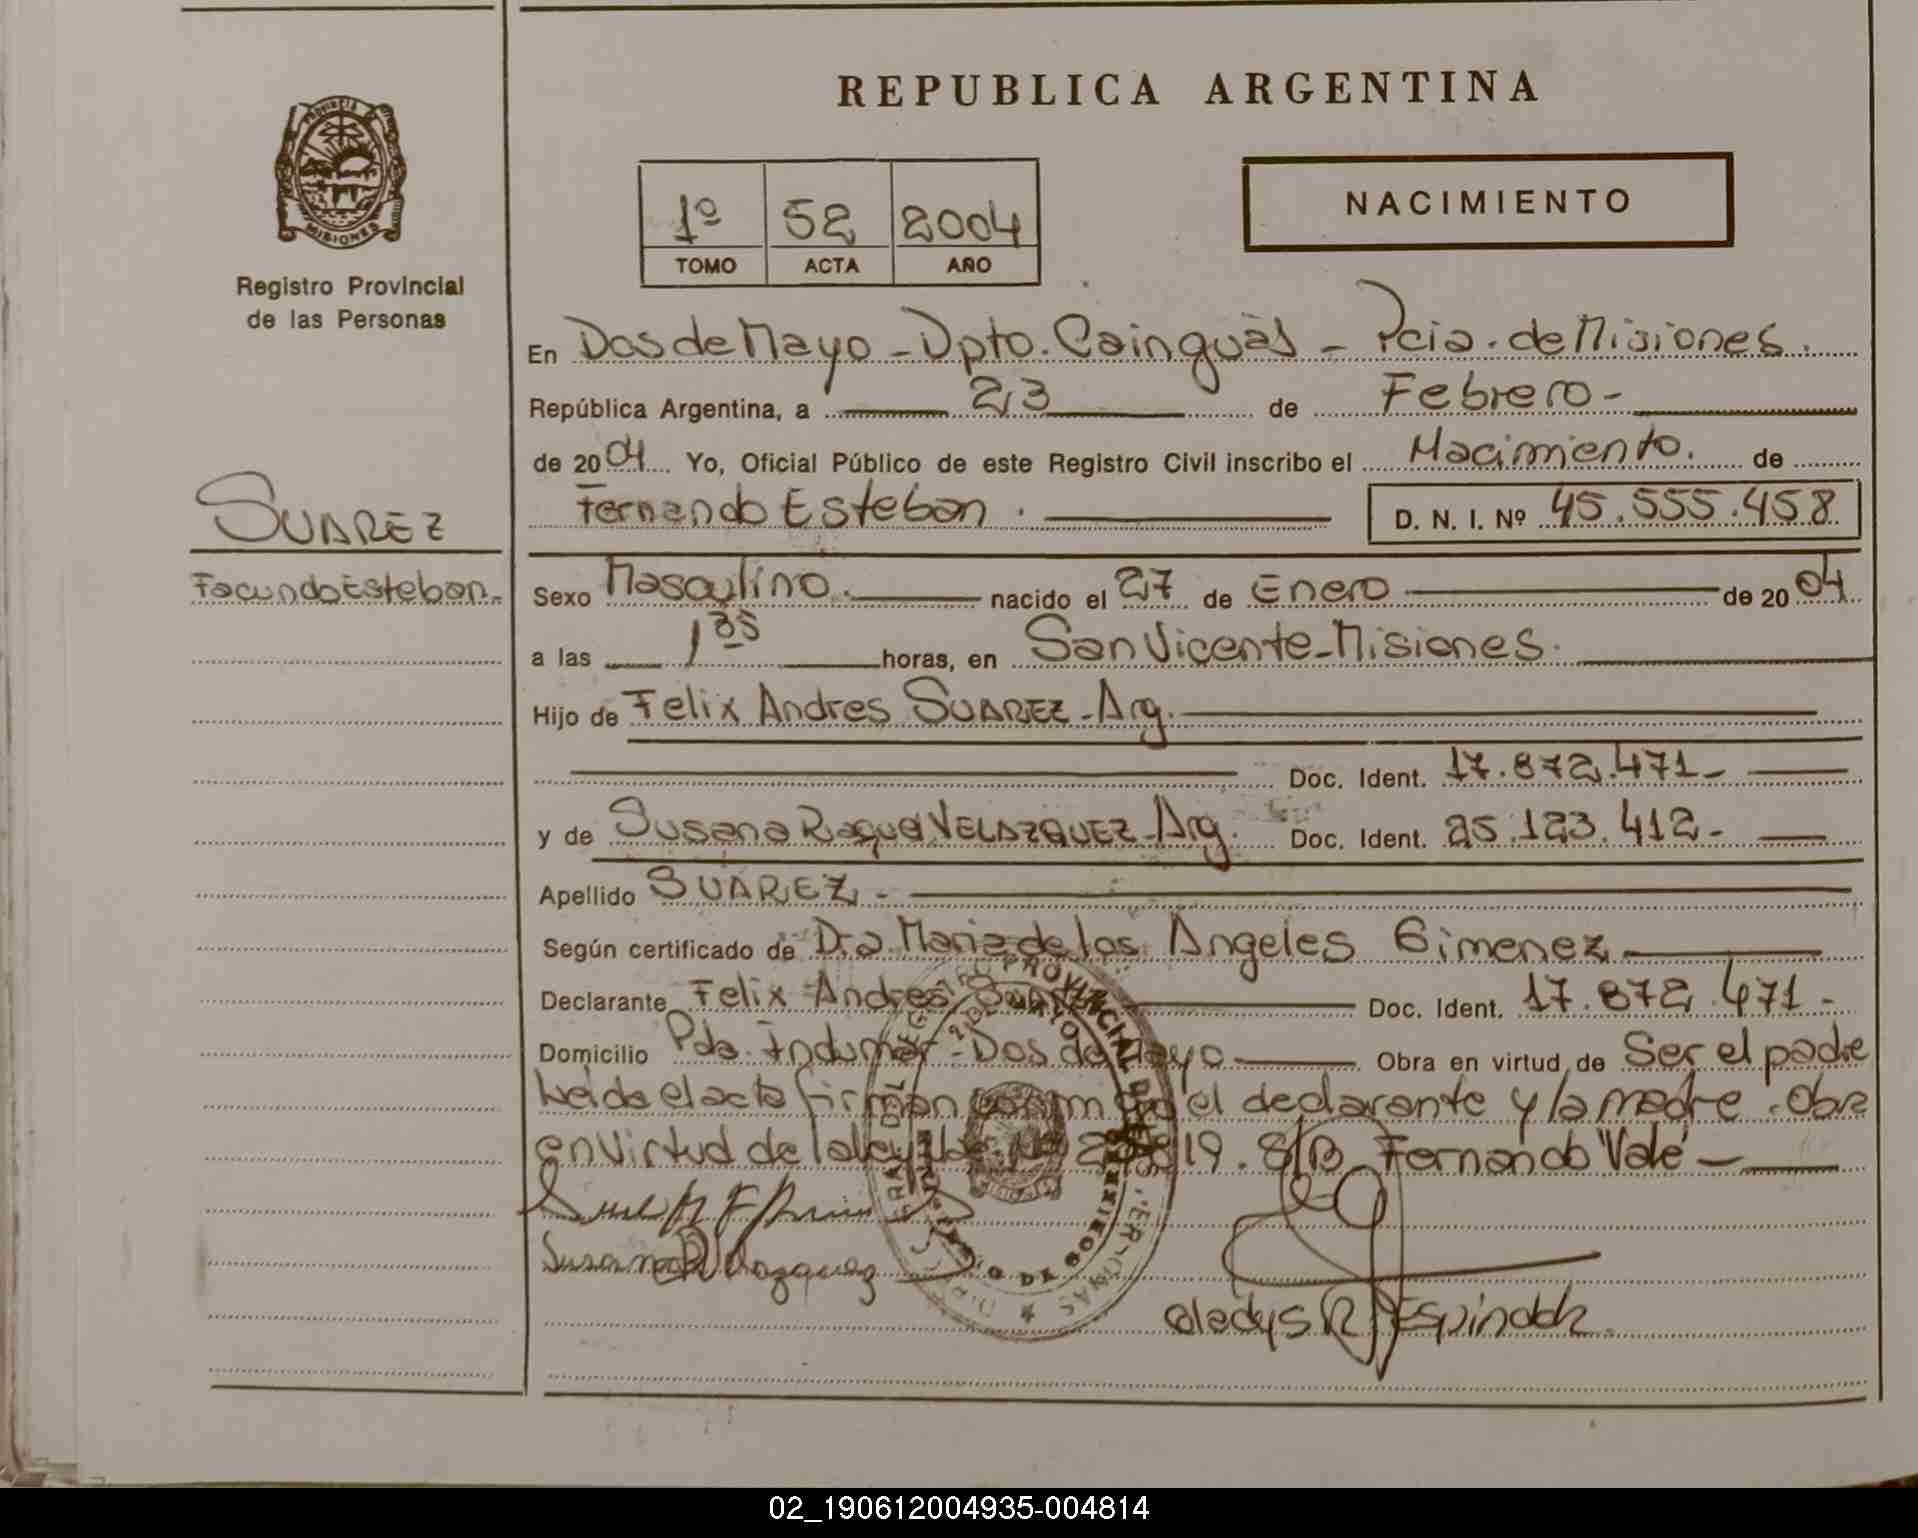 REPUBLICA ARGENTINA
PROVINCIA DE MISIONES
Registro Provincial
de las Personas
1º 52 2004
TOMO ACTA AÑO
NACIMIENTO
En Dos de Mayo - Dpto. Cainguàs - Pcia. de Misiones.
República Argentina, a 23 de Febrero -
de 2004 Yo, Oficial Público de este Registro Civil inscribo el Nacimiento. de
Fernando Esteban. D. N. I. Nº 45.555.458
SUAREZ
Facundo Esteban.
Sexo Masculino. nacido el 27 de Enero de 2004
a las 1 35 horas, en San Vicente - Misiones.
Hijo de Felix Andres SUAREZ - Arg.
Doc. Ident. 17.872.471 -
y de Susana Raquel VELAZQUEZ - Arg. Doc. Ident. 25.123.412 -
Apellido SUAREZ -
Según certificado de Dra Maria de los Angeles Gimenez
Declarante Felix Andres Suarez Doc. Ident. 17.872.471 -
Domicilio Pda. Indumar - Dos de Mayo Obra en virtud de Ser el padre
Leida el acta firman conmigo el declarante y la madre. Obra
en virtud de la ley 19. S/B Fernando "Vale" -
Gladys R. Espindola
02_190612004935-004814